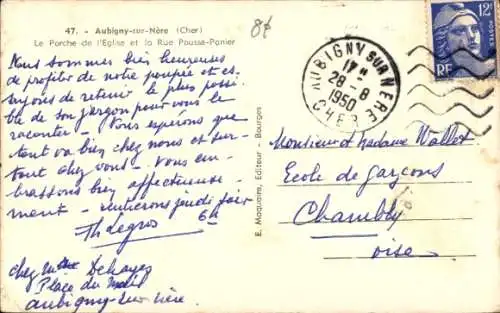 47. - Aubigny-sur-Nère (Cher)
Le Porche de l'Eglise et la Rue Pousse-Panier
8f
12F
RF
AUBIGNY SUR NERE
17 H
28-8
1950
CHER
Nous sommes bien heureuses
de profiter de notre poupée et es-
sayons de retenir le plus possi
ble de son jargon pour vous le
raconter - Nous espérons que
tout va bien chez nous et sur-
tout chez vous - Nous em-
brassons bien affectueuse-
ment - rentrerons jeudi soir
6h
Th Legros
chez Mme Dehayes
Place du Mail
Aubigny-sur-Nère.
E. Maquaire, Editeur - Bourges
Monsieur et Madame Wallet
Ecole de garçons
Chambly
Oise